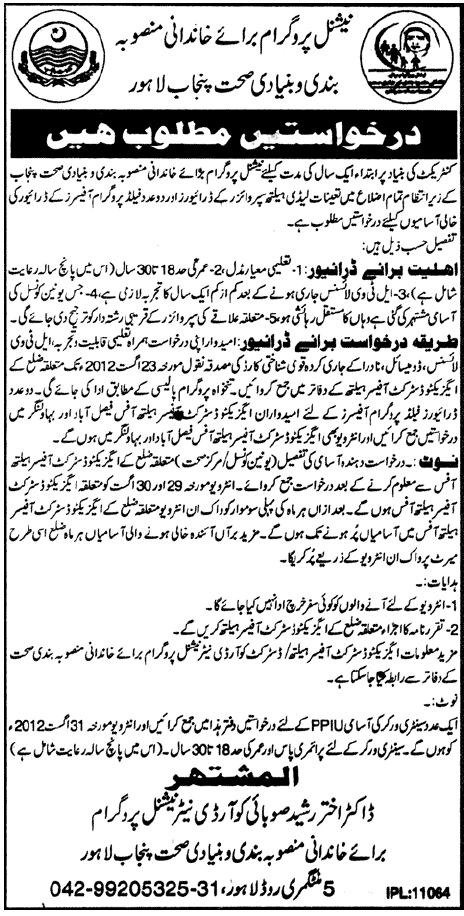 نیشنل پروگرام برائے خاندانی منصوبہ
بندی و بنیادی صحت پنجاب لاہور
درخواستیں مطلوب ھیں
کنٹریکٹ کی بنیاد پر ابتداء ایک سال کی مدت کیلئے نیشنل پروگرام برائے خاندانی منصوبہ بندی و بنیادی صحت پنجاب
کے زیر انتظام تمام اضلاع میں تعینات لیڈی ہیلتھ سپروائزر کے ڈرائیورز اور دو عدد فیلڈ پروگرام آفیسرز کے ڈرائیور کی
خالی آسامیوں کیلئے درخواستیں مطلوب ہے۔
تفصیل حسب ذیل ہیں:
اھلیت برائے ڈرائیور: 1- تعلیمی معیار مڈل، 2- عمر کی حد 18 تا 30 سال (اس میں پانچ سالہ رعایت
شامل ہے)، 3- ایل ٹی وی لائسنس جاری ہونے کے بعد کم از کم ایک سال کا تجربہ لازمی ہے، 4- جس یونین کونسل کی
آسامی مشتہر کی گئی ہے وہاں کا مستقل رہائشی ہو، 5- متعلقہ علاقے کی سپروائزر کے قریبی رشتہ دار کو ترجیح دی جائے گی۔
طریقہ درخواست برائے ڈرائیور: امیدوار اپنی درخواست ہمراہ تعلیمی قابلیت و تجربہ، ایل ٹی وی
لائسنس، ڈومیسائل، نادرا کے جاری کردہ قومی شناختی کارڈ کی مصدقہ نقول مورخہ 23 اگست 2012ء تک متعلقہ ضلع کے
ایگزیکٹو ڈسٹرکٹ آفیسر ہیلتھ کے دفاتر میں جمع کرائیں۔ تنخواہ پروگرام پالیسی کے مطابق ادا کی جائے گی۔ دو عدد
ڈرائیورز فیلڈ پروگرام آفیسرز کے لئے امیدواران ایگزیکٹو ڈسٹرکٹ آفیسر ہیلتھ آفس فیصل آباد اور بہاولنگر میں
درخواستیں جمع کرائیں اور انٹرویو بھی ایگزیکٹو ڈسٹرکٹ آفیسر ہیلتھ آفس فیصل آباد اور بہالنگر میں ہوں گے۔
نوٹ:۔ درخواست دہندہ آسامی کی تفصیل (یونین کونسل/ مرکز صحت) متعلقہ ضلع ایگزیکٹو ڈسٹرکٹ آفیسر ہیلتھ
آفس سے معلوم کرنے کے بعد درخواست جمع کروائے۔ انٹرویو مورخہ 29 اور 30 اگست کو متعلقہ ایگزیکٹو ڈسٹرکٹ
آفیسر ہیلتھ آفس ہوں گے۔ بعد ازاں ہر ماہ کی پہلی سوموار کو واک ان انٹرویو متعلقہ ضلع کے ایگزیکٹو ڈسٹرکٹ آفیسر
ہیلتھ آفس میں آسامیاں پر ہونے تک ہوں گے۔ مزید برآں آئندہ خالی ہونے والی آسامیاں ہر ماہ ضلع اسی طرح
میرٹ پر واک ان انٹرویو کے ذریعے پُر کریگا۔
ہدایات:۔
1- انٹرویو کے لئے آنے والوں کو کوئی سفر خرچ ادا نہیں کیا جائے گا۔
2- تقرر نامہ کا اجراء متعلقہ ضلع کے ایگزیکٹو ڈسٹرکٹ آفیسر ہیلتھ کریں گے۔
مزید معلومات ایگزیکٹو ڈسٹرکٹ آفیسر ہیلتھ/ ڈسٹرکٹ کوآرڈی نیٹر نیشنل پروگرام برائے خاندانی منصوبہ بندی صحت
کے دفاتر سے رابطہ کیا جا سکتا ہے۔
نوٹ:۔
ایک عدد سینٹری ورکر کی آسامی PPIU کے لئے درخواستیں دفتر ہذا میں جمع کرائیں اور انٹرویو مورخہ 31 اگست 2012ء
کو ہوں گے۔ سینٹری ورکر کے لئے پرائمری پاس اور عمر کی حد 18 تا 30 سال۔ (اس میں پانچ سالہ رعایت شامل ہے)
المشتھر
ڈاکٹر اختر رشید صوبائی کوآرڈی نیٹر نیشنل پروگرام
برائے خاندانی منصوبہ بندی و بنیادی صحت پنجاب لاہور
5 منٹگمری روڈ لاہور، 31-99205325-042
IPL:11064